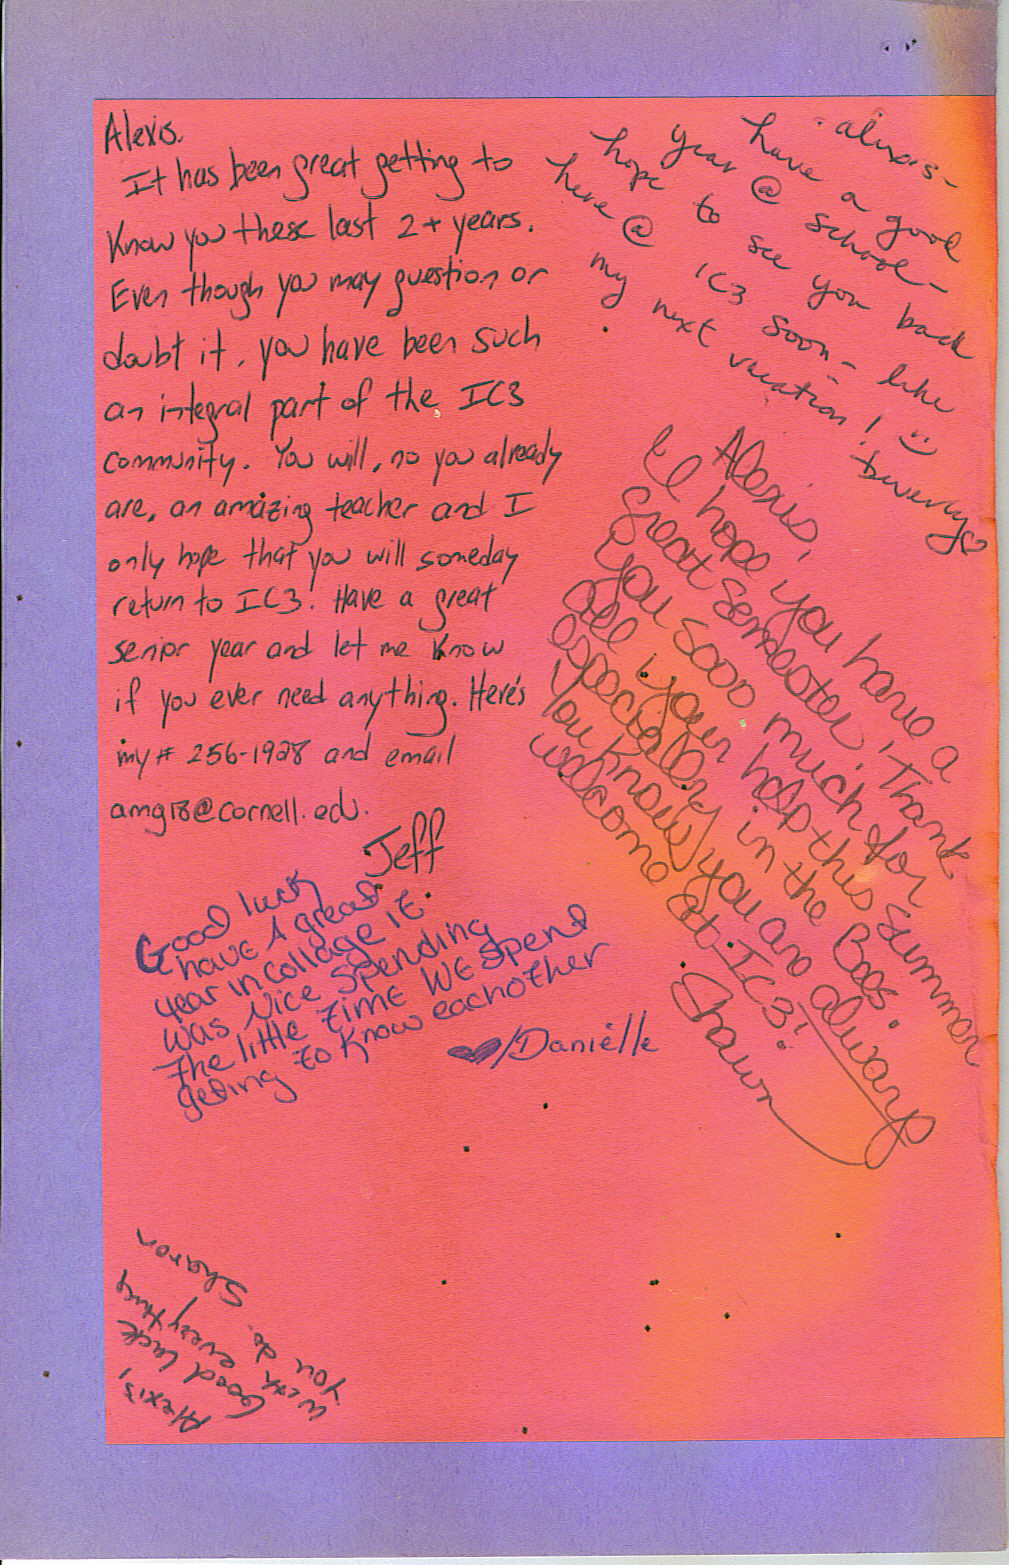 Alexis.
It has been great getting to
Know you these last 2+ years.
Even though you may question or
doubt it, you have been such
an integral part of the IC3
community. You will, no you already
are, an amazing teacher and I
only hope that you will someday
return to IC3! Have a great
senior year and let me know
if you ever need anything. Here's
my # 256-1928 and email
amg18@cornell.edu.
Jeff
alexis-
have a good
year @ school-
hope to see you back
here @ IC3 soon- like
my next vacation! :)
Beverly ♡
Alexis,
I hope you have a
great semester. Thank
you sooo much for
all your help this summer
especially in the Boos.
You know you are always
welcome at IC3!
Shawn
Good luck
have A great
year in collage it
was Nice spending
The little time we spent
geting to know eachother
♥/Danielle
Alexis,
Good luck
with everything
you do.
Sharon